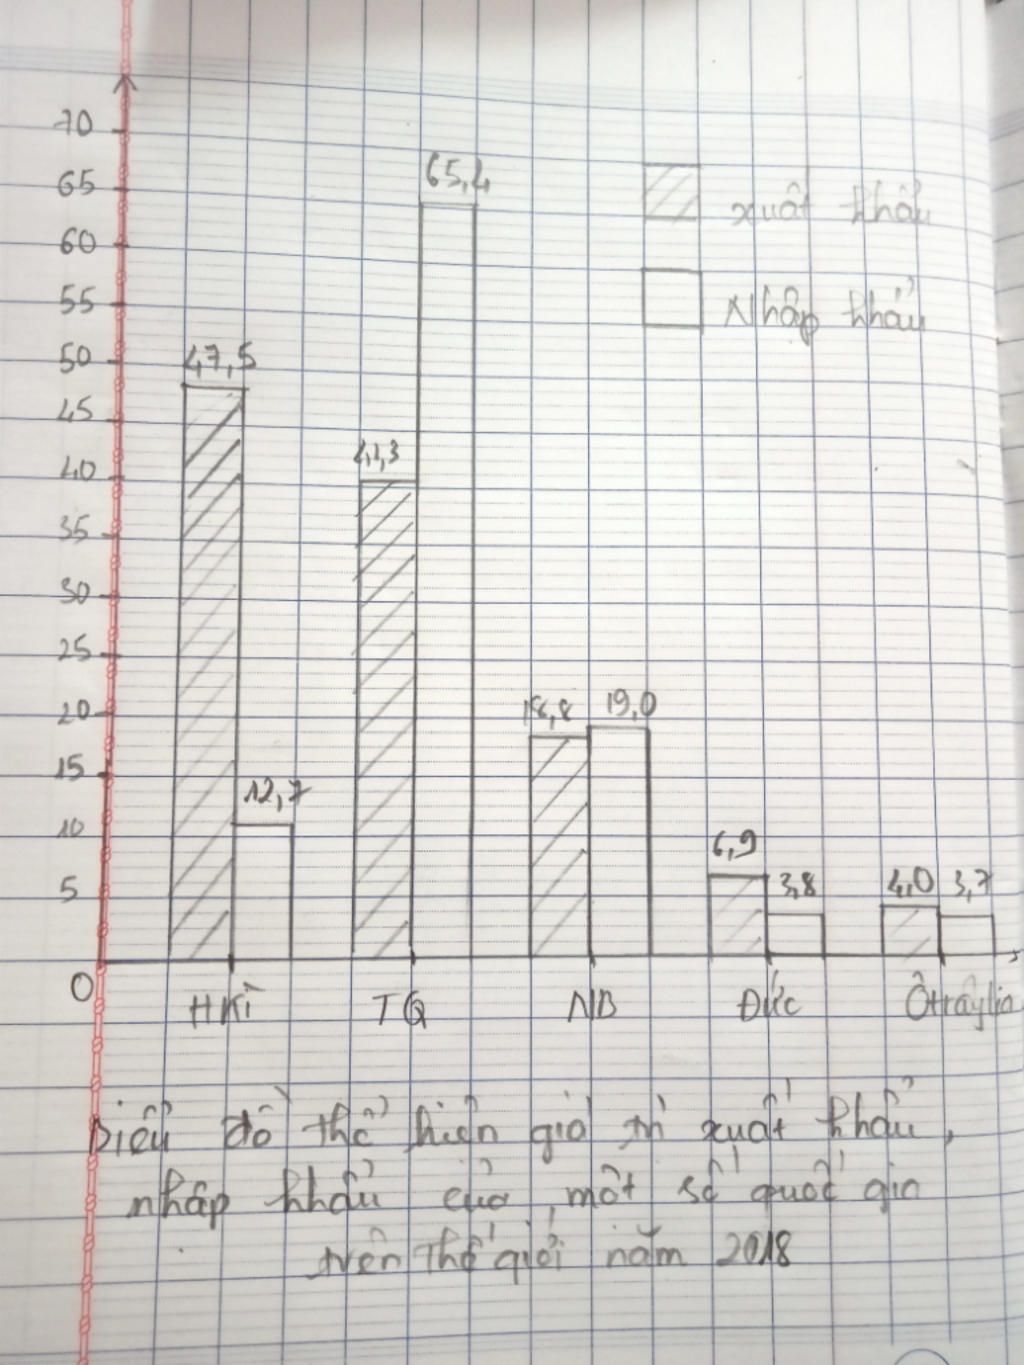 70
65
60
55
50
45
40
35
30
25
20
15
10
5
0
47,5
12,7
41,3
65,4
18,8
19,0
6,9
3,8
4,0
3,7
xuất khẩu
Nhập khẩu
H Kì
TQ
NB
Đức
Ôtrâylia
Biểu đồ thể hiện giá trị xuất khẩu,
nhập khẩu của một số quốc gia
trên thế giới năm 2018